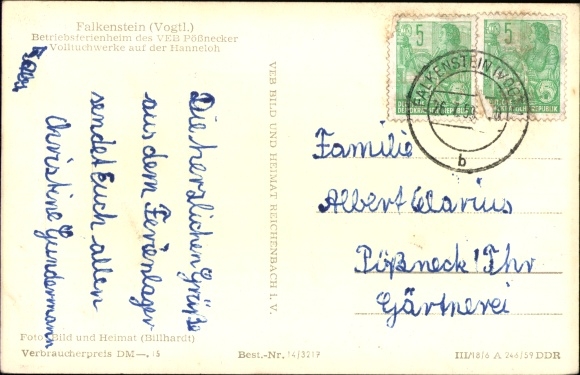 Falkenstein (Vogtl.)
Betriebsferienheim des VEB Pößnecker
Volltuchwerke auf der Hanneloh
Die herzlichen Grüße
aus dem Ferienlager
sendet Euch allen
Christine Gundermann
VEB BILD UND HEIMAT REICHENBACH I. V.
5
5
FALKENSTEIN (VOGTL)
b
Familie
Albert Clarius
Pößneck/Thr
Gärtnerei
Foto: Bild und Heimat (Billhardt)
Verbraucherpreis DM —.15
Best.-Nr. 14/3217
III/18/6 A 246/59 DDR